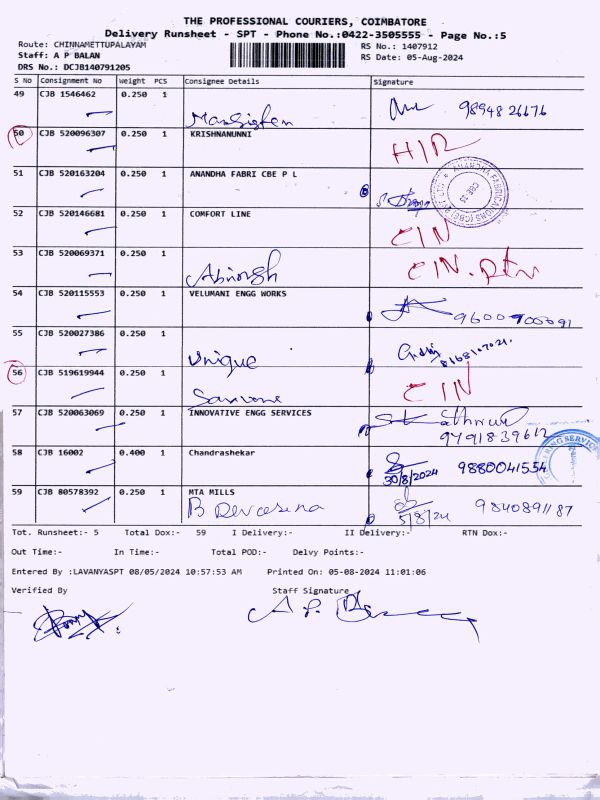 THE PROFESSIONAL COURIERS, COIMBATORE
Delivery Runsheet - SPT - Phone No.:0422-3505555 - Page No.:5
Route: CHINNAMETTUPALAYAM RS No.: 1407912
Staff: A P BALAN RS Date: 05-Aug-2024
DRS No.: DCJB140791205
S No Consignment No Weight PCS Consignee Details Signature
49 CJB 1546462 0.250 1 98948 26676
50 CJB 520096307 0.250 1 KRISHNANUNNI
51 CJB 520163204 0.250 1 ANANDHA FABRI CBE P L
52 CJB 520146681 0.250 1 COMFORT LINE
CIN
53 CJB 520069371 0.250 1 CIN. Rtn
54 CJB 520115553 0.250 1 VELUMANI ENGG WORKS
55 CJB 520027386 0.250 1
unique
56 CJB 519619944 0.250 1 CIN
57 CJB 520063069 0.250 1 INNOVATIVE ENGG SERVICES
9791839612
58 CJB 16002 0.400 1 Chandrashekar 9880041554
30/8/2024
59 CJB 80578392 0.250 1 MTA MILLS
B Devasena 9840891187
5/8/24
Tot. Runsheet:- 5 Total Dox:- 59 I Delivery:- II Delivery:- RTN Dox:-
Out Time:- In Time:- Total POD:- Delvy Points:-
Entered By :LAVANYASPT 08/05/2024 10:57:53 AM Printed On: 05-08-2024 11:01:06
Verified By Staff Signature